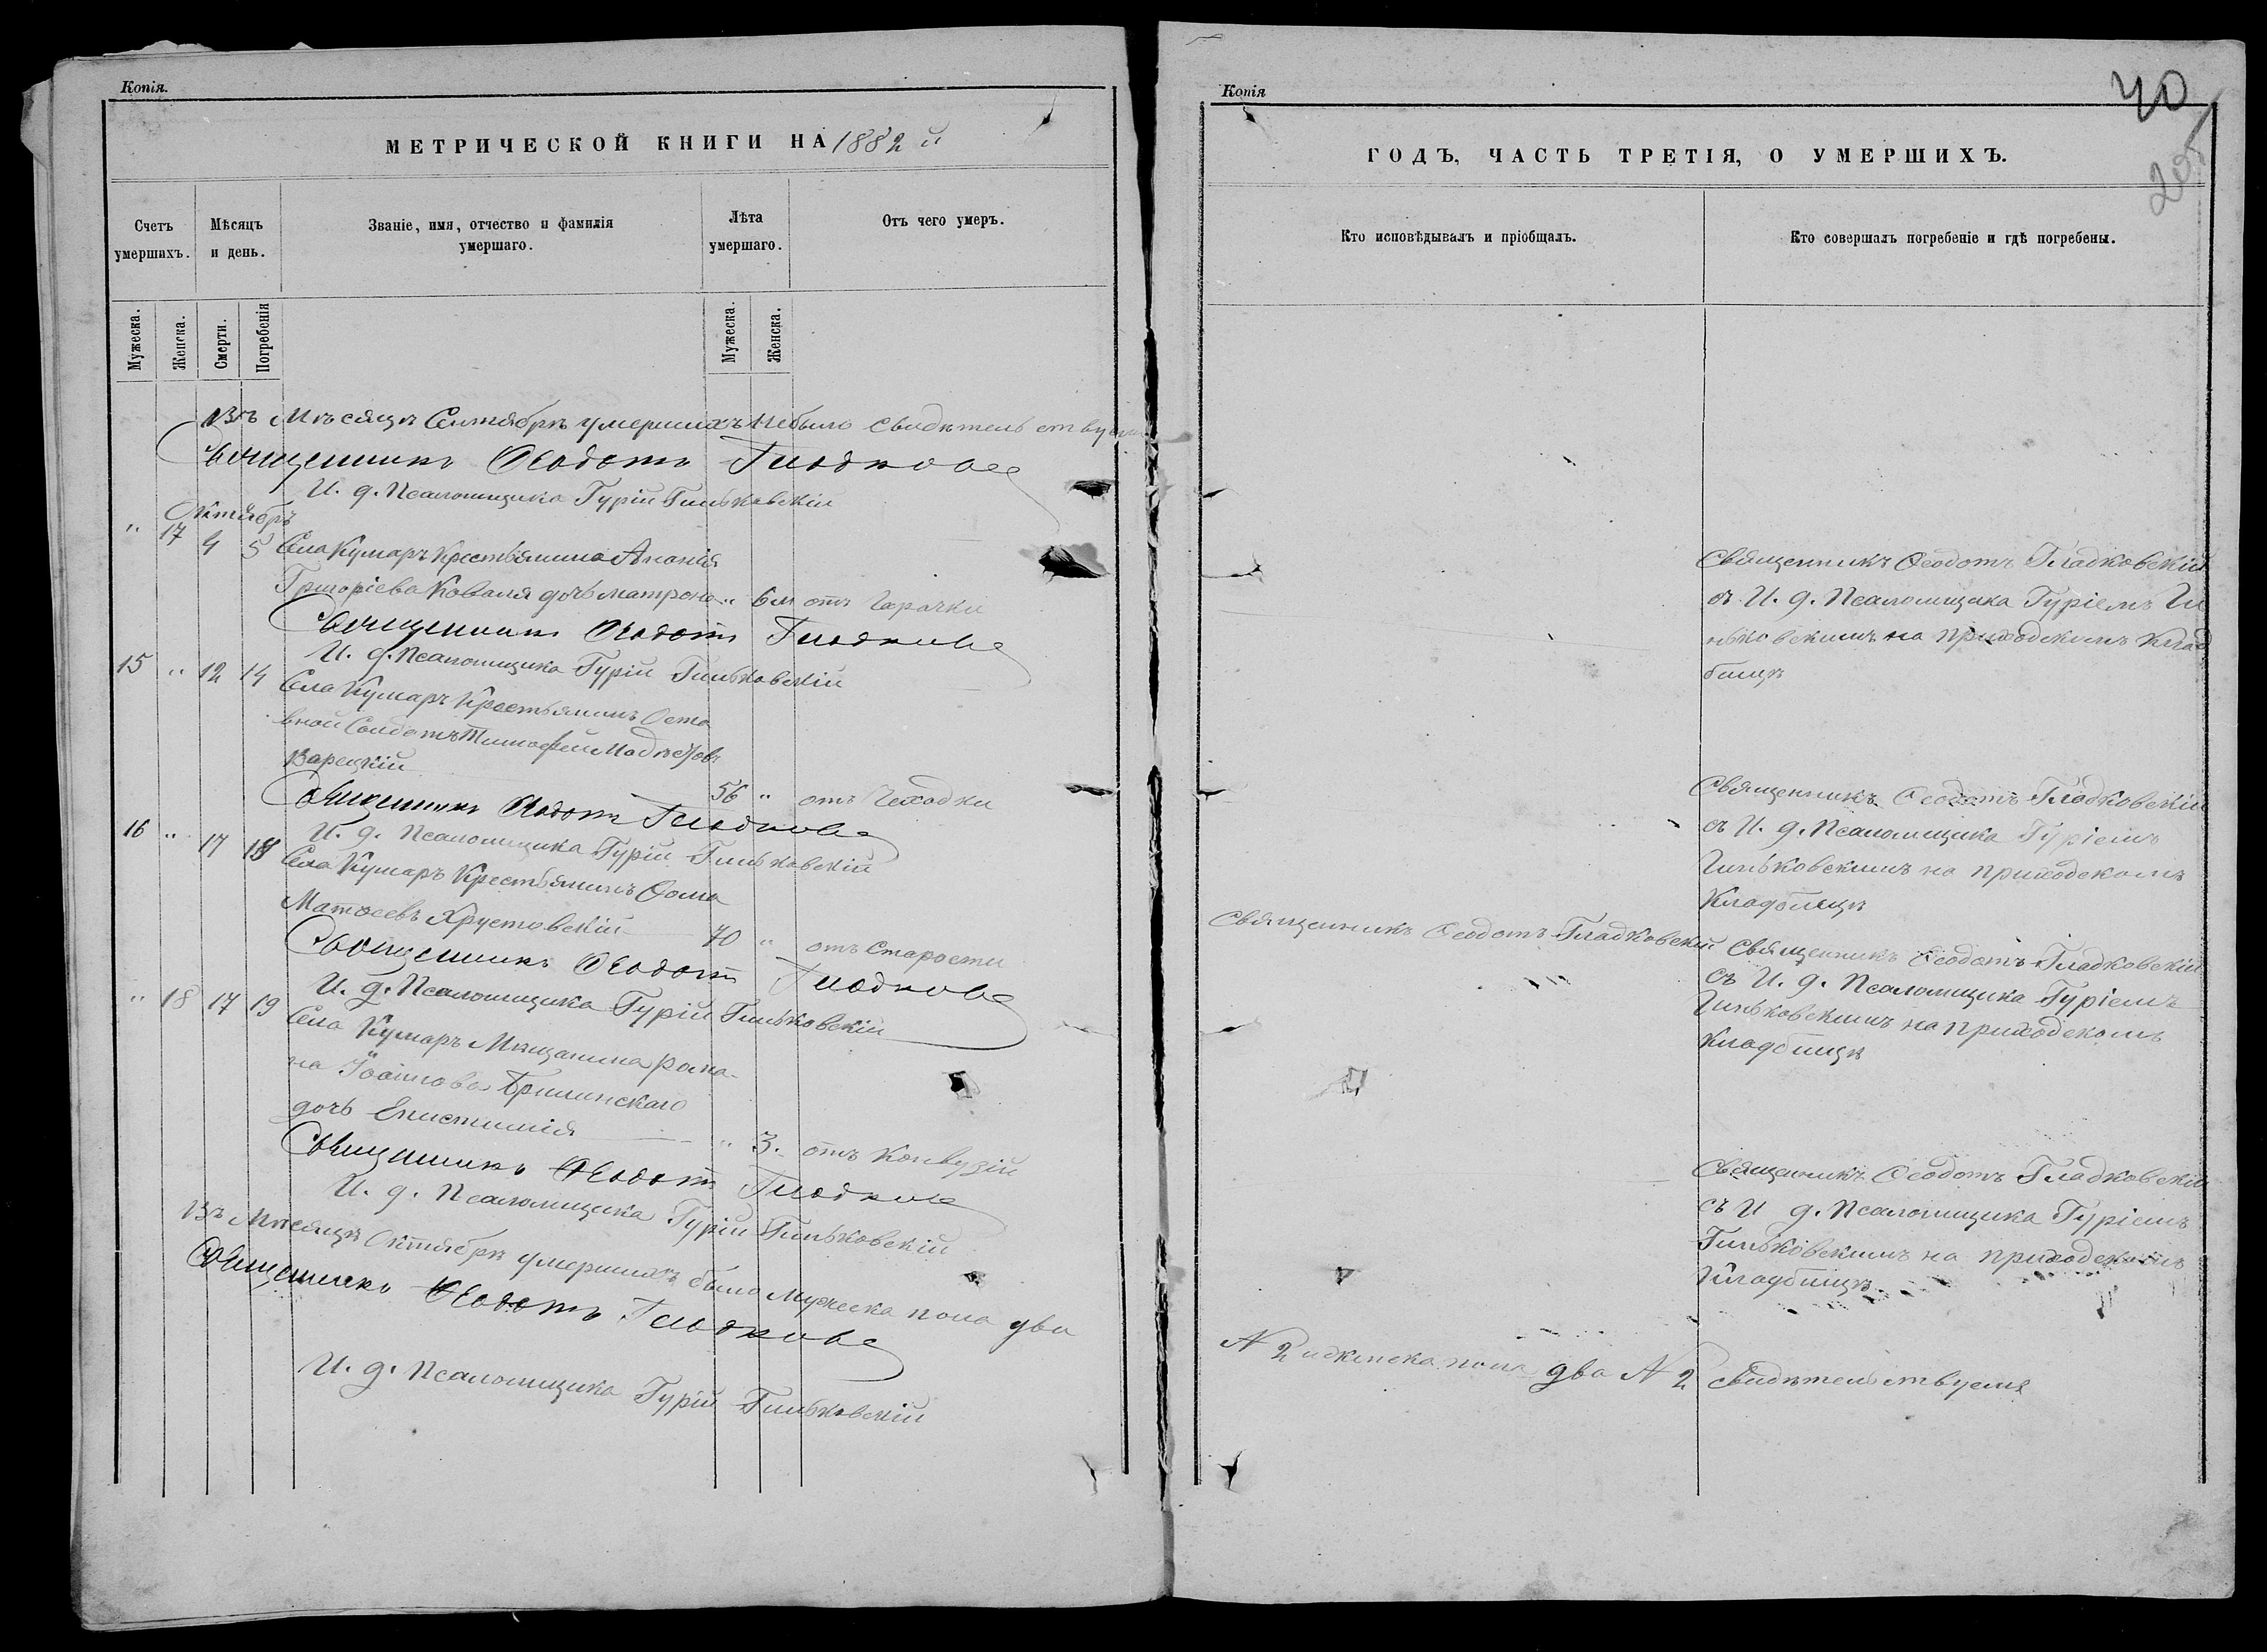 Копія.
МЕТРИЧЕСКОЙ КНИГИ НА 1882 й
Счетъ умершихъ.
Мѣсяцъ и день.
Званіе, имя, отчество и фамилія умершаго.
Лѣта умершаго.
Отъ чего умеръ.
Мужеска.
Женска.
Смерти.
Погребенія
Мужеска.
Женска.
Въ Мѣсяцѣ Сентябрѣ умершихъ небыло свидѣтельствуемъ
Священникъ Ѳеодотъ Гладковс
И. д. Псаломщика Гурій Гиньковскій
Октябрь
" 17 4 5 Села Кумаръ Крестьянина Ананія
Григоріева Коваля дочь Матрона " 6 м отъ Горячки
Священникъ Ѳеодотъ Гладковс
И. д. Псаломщика Гурій Гиньковскій
15 " 12 14 Села Кумаръ Крестьянинъ Оста
вной Солдатъ Тимофей
Варецкій 56 " отъ Чаходки
Священникъ Ѳеодотъ Гладковс
И. д. Псаломщика Гурій Гиньковскій
16 " 17 18 Села Кумаръ Крестьянинъ Ѳома
Матѳеевъ Хрустовскій 70 " отъ Старости
Священникъ Ѳеодотъ Гладковс
И. д. Псаломщика Гурій Гиньковскій
" 18 17 19 Села Кумаръ Мѣщанина Рома-
на Іоаимова
дочь Епистимія " 3. отъ Конвузій
Священникъ Ѳеодотъ Гладковс
И. д. Псаломщика Гурій Гиньковскій
Въ Мѣсяцѣ Октябрѣ умершихъ было мужеска пола два
Священникъ Ѳеодотъ Гладковс
И. д. Псаломщика Гурій Гиньковскій
Копія
40
205
ГОДЪ, ЧАСТЬ ТРЕТІЯ, О УМЕРШИХЪ.
Кто исповѣдывалъ и пріобщалъ.
Кто совершалъ погребеніе и гдѣ погребены.
Священникъ Ѳеодотъ Гладковскій
съ И. д. Псаломщика Гуріемъ Ги
ньковскимъ на приходскомъ клад
бищѣ
Священникъ Ѳеодотъ Гладковскій
съ И. д. Псаломщика Гуріемъ
Гиньковскимъ на приходскомъ
Кладбищѣ
Священникъ Ѳеодотъ Гладковскій
Священникъ Ѳеодотъ Гладковскій
Съ И. д. Псаломщика Гуріемъ
Гиньковскимъ на приходскомъ
Кладбищѣ
Священникъ Ѳеодотъ Гладковскій
съ И д. Псаломщика Гуріемъ
Гиньковскимъ на приходскомъ
Кладбищѣ
N 2 иженска пола два N 2 свидѣтельствуемъ